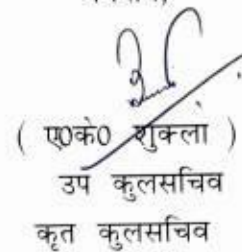 ( ए०के० शुक्ला )
उप कुलसचिव
कृत कुलसचिव